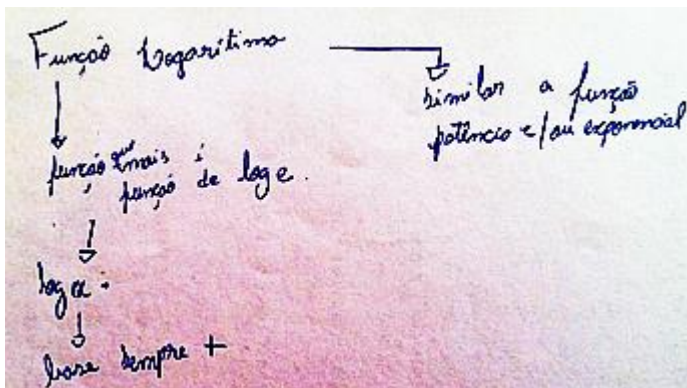 Função Logaritimo
similar a função
potência e/ou exponencial
função que mais é
função de log e.
log a.
base sempre +